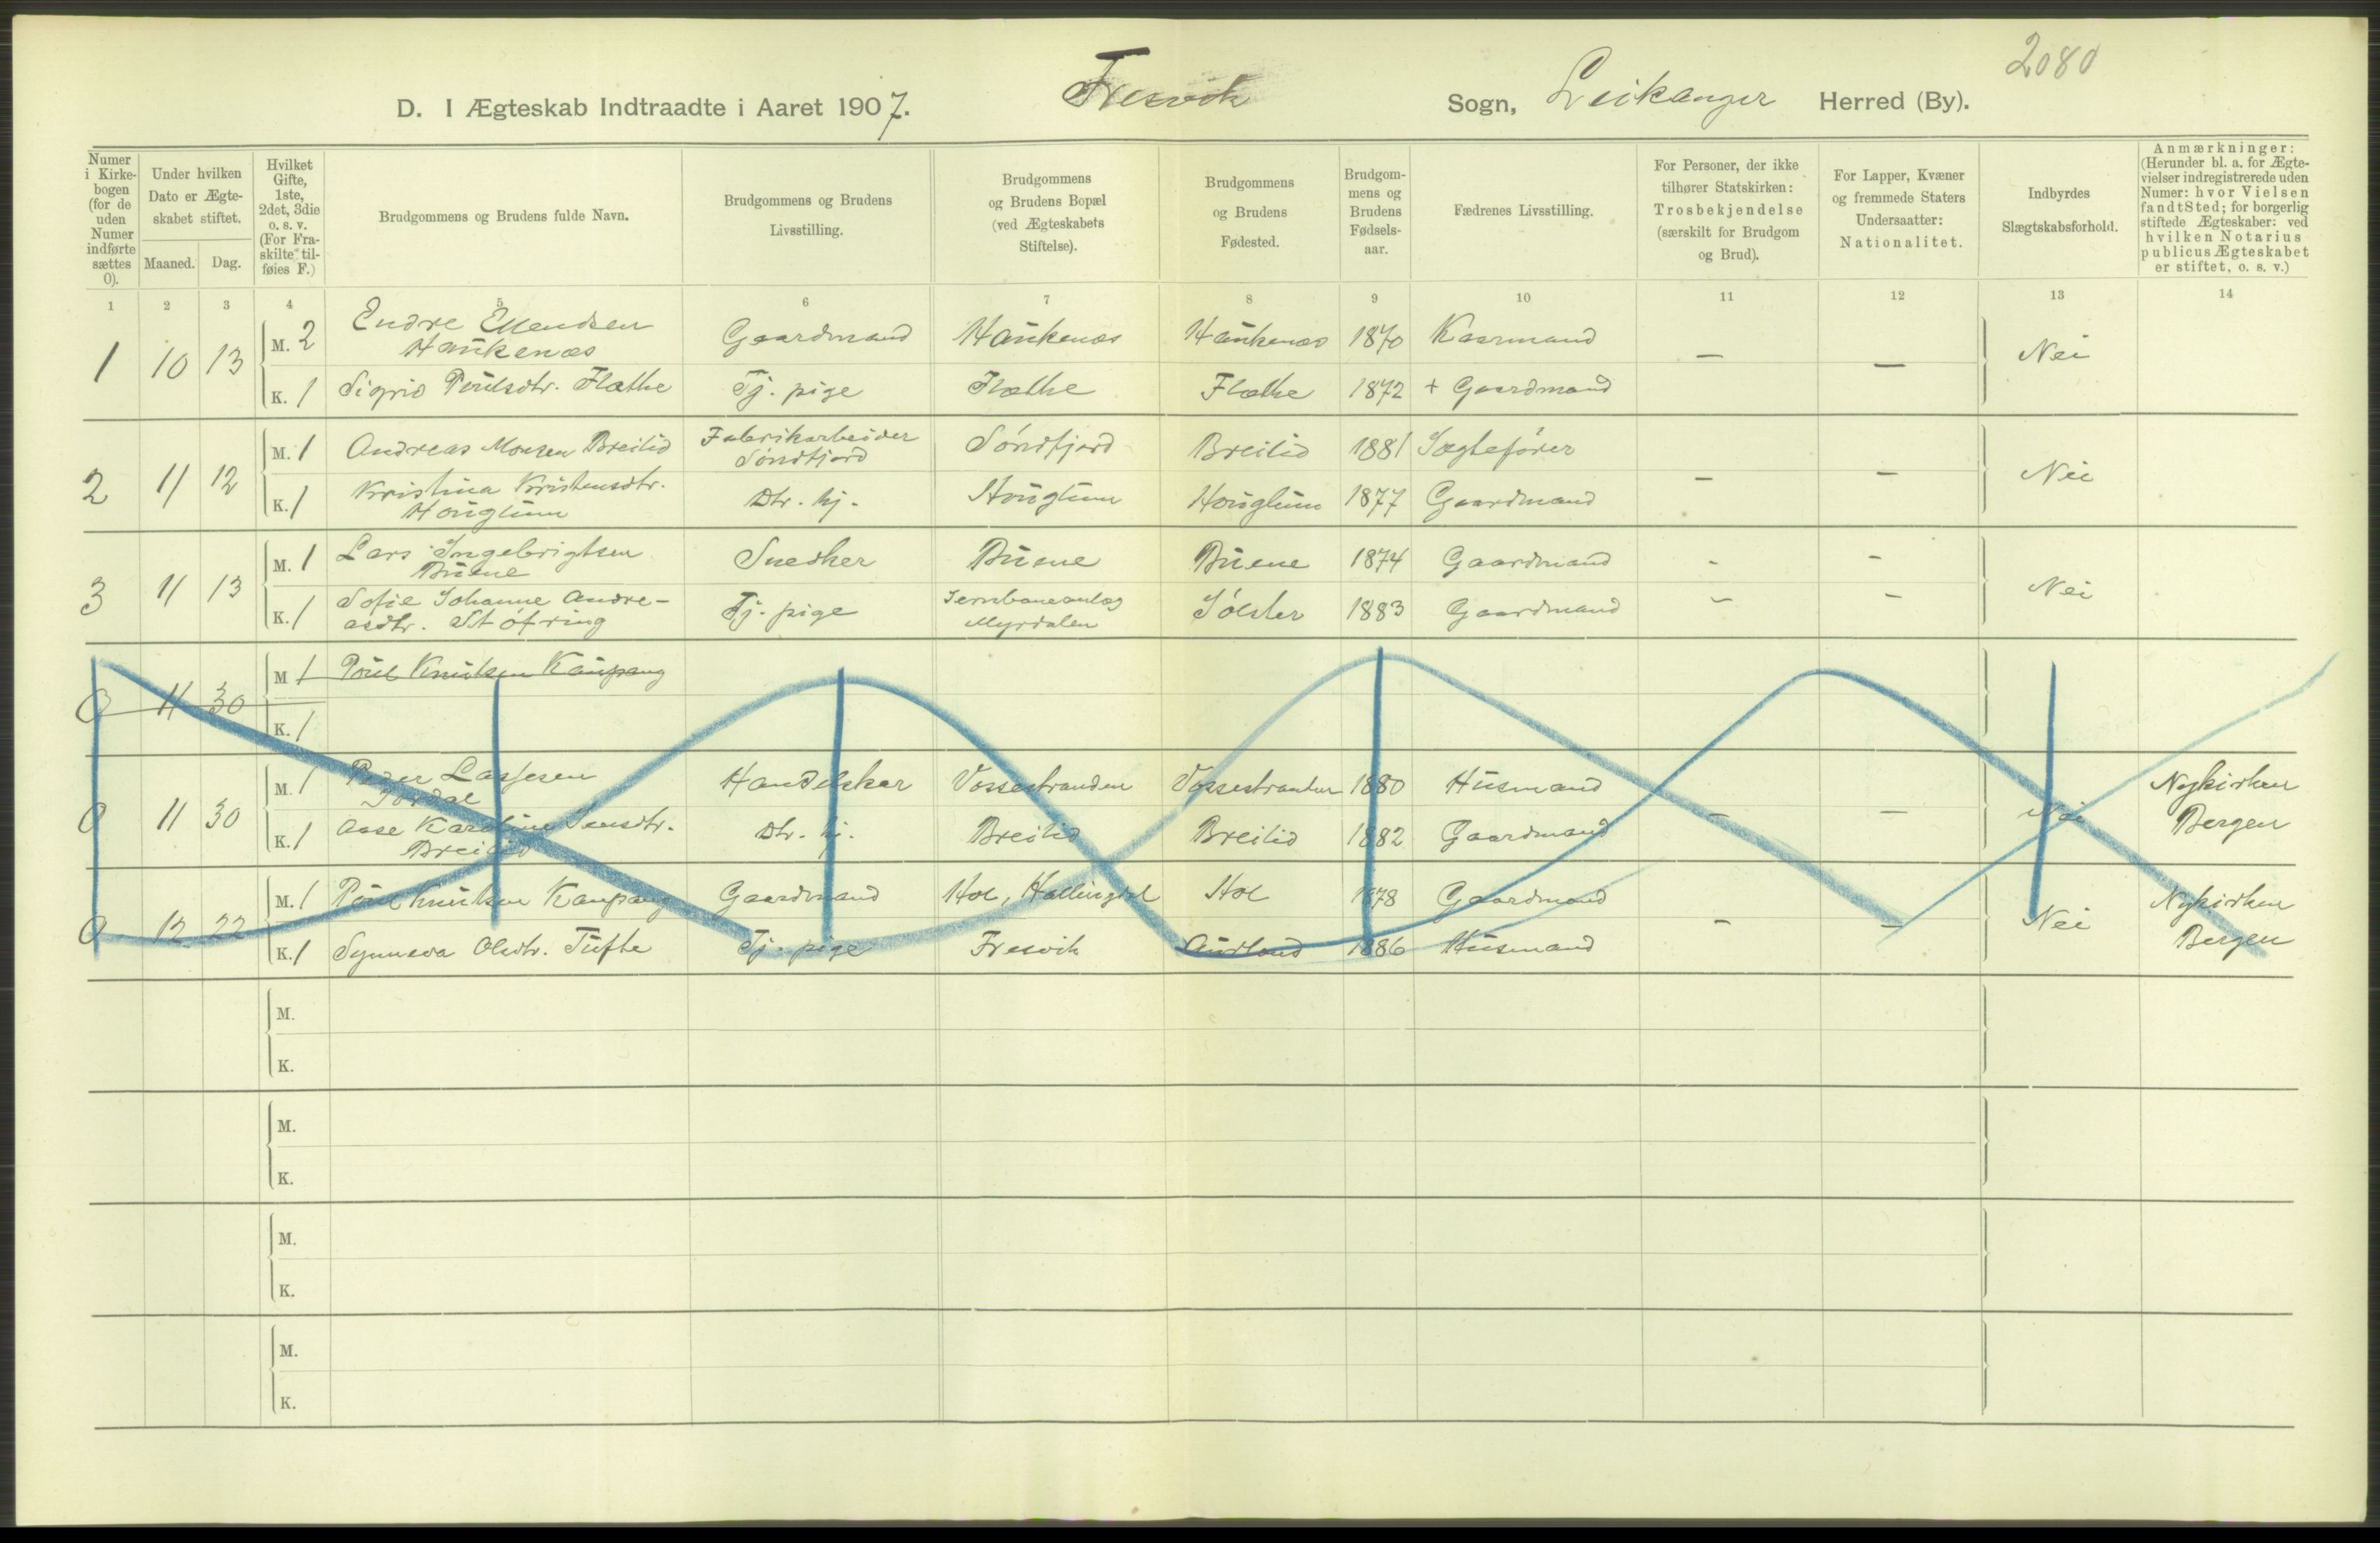 2080
D. I Ægteskab Indtraadte i Aaret 1907. Fresvik Sogn, Leikanger Herred (By).
Numer i Kirkebogen (for de uden Numer indførte sættes 0).
Under hvilken Dato er Ægteskabet stiftet.
Maaned. Dag.
Hvilket Gifte, 1ste, 2det, 3die o. s. v. (For Fraskilte tilføies F.)
Brudgommens og Brudens fulde Navn.
Brudgommens og Brudens Livsstilling.
Brudgommens og Brudens Bopæl (ved Ægteskabets Stiftelse).
Brudgommens og Brudens Fødested.
Brudgommens og Brudens Fødselsaar.
Fædrenes Livsstilling.
For Personer, der ikke tilhører Statskirken: Trosbekjendelse (særskilt for Brudgom og Brud).
For Lapper, Kvæner og fremmede Staters Undersaatter: Nationalitet.
Indbyrdes Slægtskabsforhold.
Anmærkninger: (Herunder bl. a. for Ægtevielser indregistrerede uden Numer: hvor Vielsen fandt Sted; for borgerlig stiftede Ægteskaber: ved hvilken Notarius publicus Ægteskabet er stiftet, o. s. v.)
1 2 3 4 5 6 7 8 9 10 11 12 13 14
1 10 13 M. 2 Endre Ellendsen Haukenæs Gaardmand Haukenæs Haukenæs 1870 Kaarmand — — Nei
K. 1 Sigrid Poulsdtr. Flæthe Tj. pige Flæthe Flæthe 1872 + Gaardmand
2 11 12 M. 1 Andreas Monsen Breilid Fabrikarbeider Söndfjord Söndfjord Breilid 1881 Jægtefører — — Nei
K. 1 Kristina Kristensdtr. Houglum Dtr. hj. Houglum Houglum 1877 Gaardmand
3 11 13 M. 1 Lars Ingebrigtsen Buene Snedker Buene Buene 1874 Gaardmand - - Nei
K. 1 Sofie Johanne Andreasdtr. Støfring Tj. pige Jernbaneanlæg Myrdalen Jölster 1883 Gaardmand - -
0 11 30 M 1 Poul Knutsen Kaupang
K. 1
0 11 30 M. 1 Peder Lassesen Jordal Handelskar Vossestranden Vossestranden 1880 Husmand — — Nei Nykirken Bergen
K. 1 Aase Karoline Jensdtr. Breilid Dtr. hj. Breilid Breilid 1882 Gaardmand
0 12 22 M. 1 Poul Knutsen Kaupang Gaardmand Hol, Hallingdal Hol 1878 Gaardmand — — Nei Nykirken Bergen
K. 1 Synneva Olsdtr. Tufte Tj. pige Fresvik Aurland 1886 Husmand
M.
K.
M.
K.
M.
K.
M.
K.